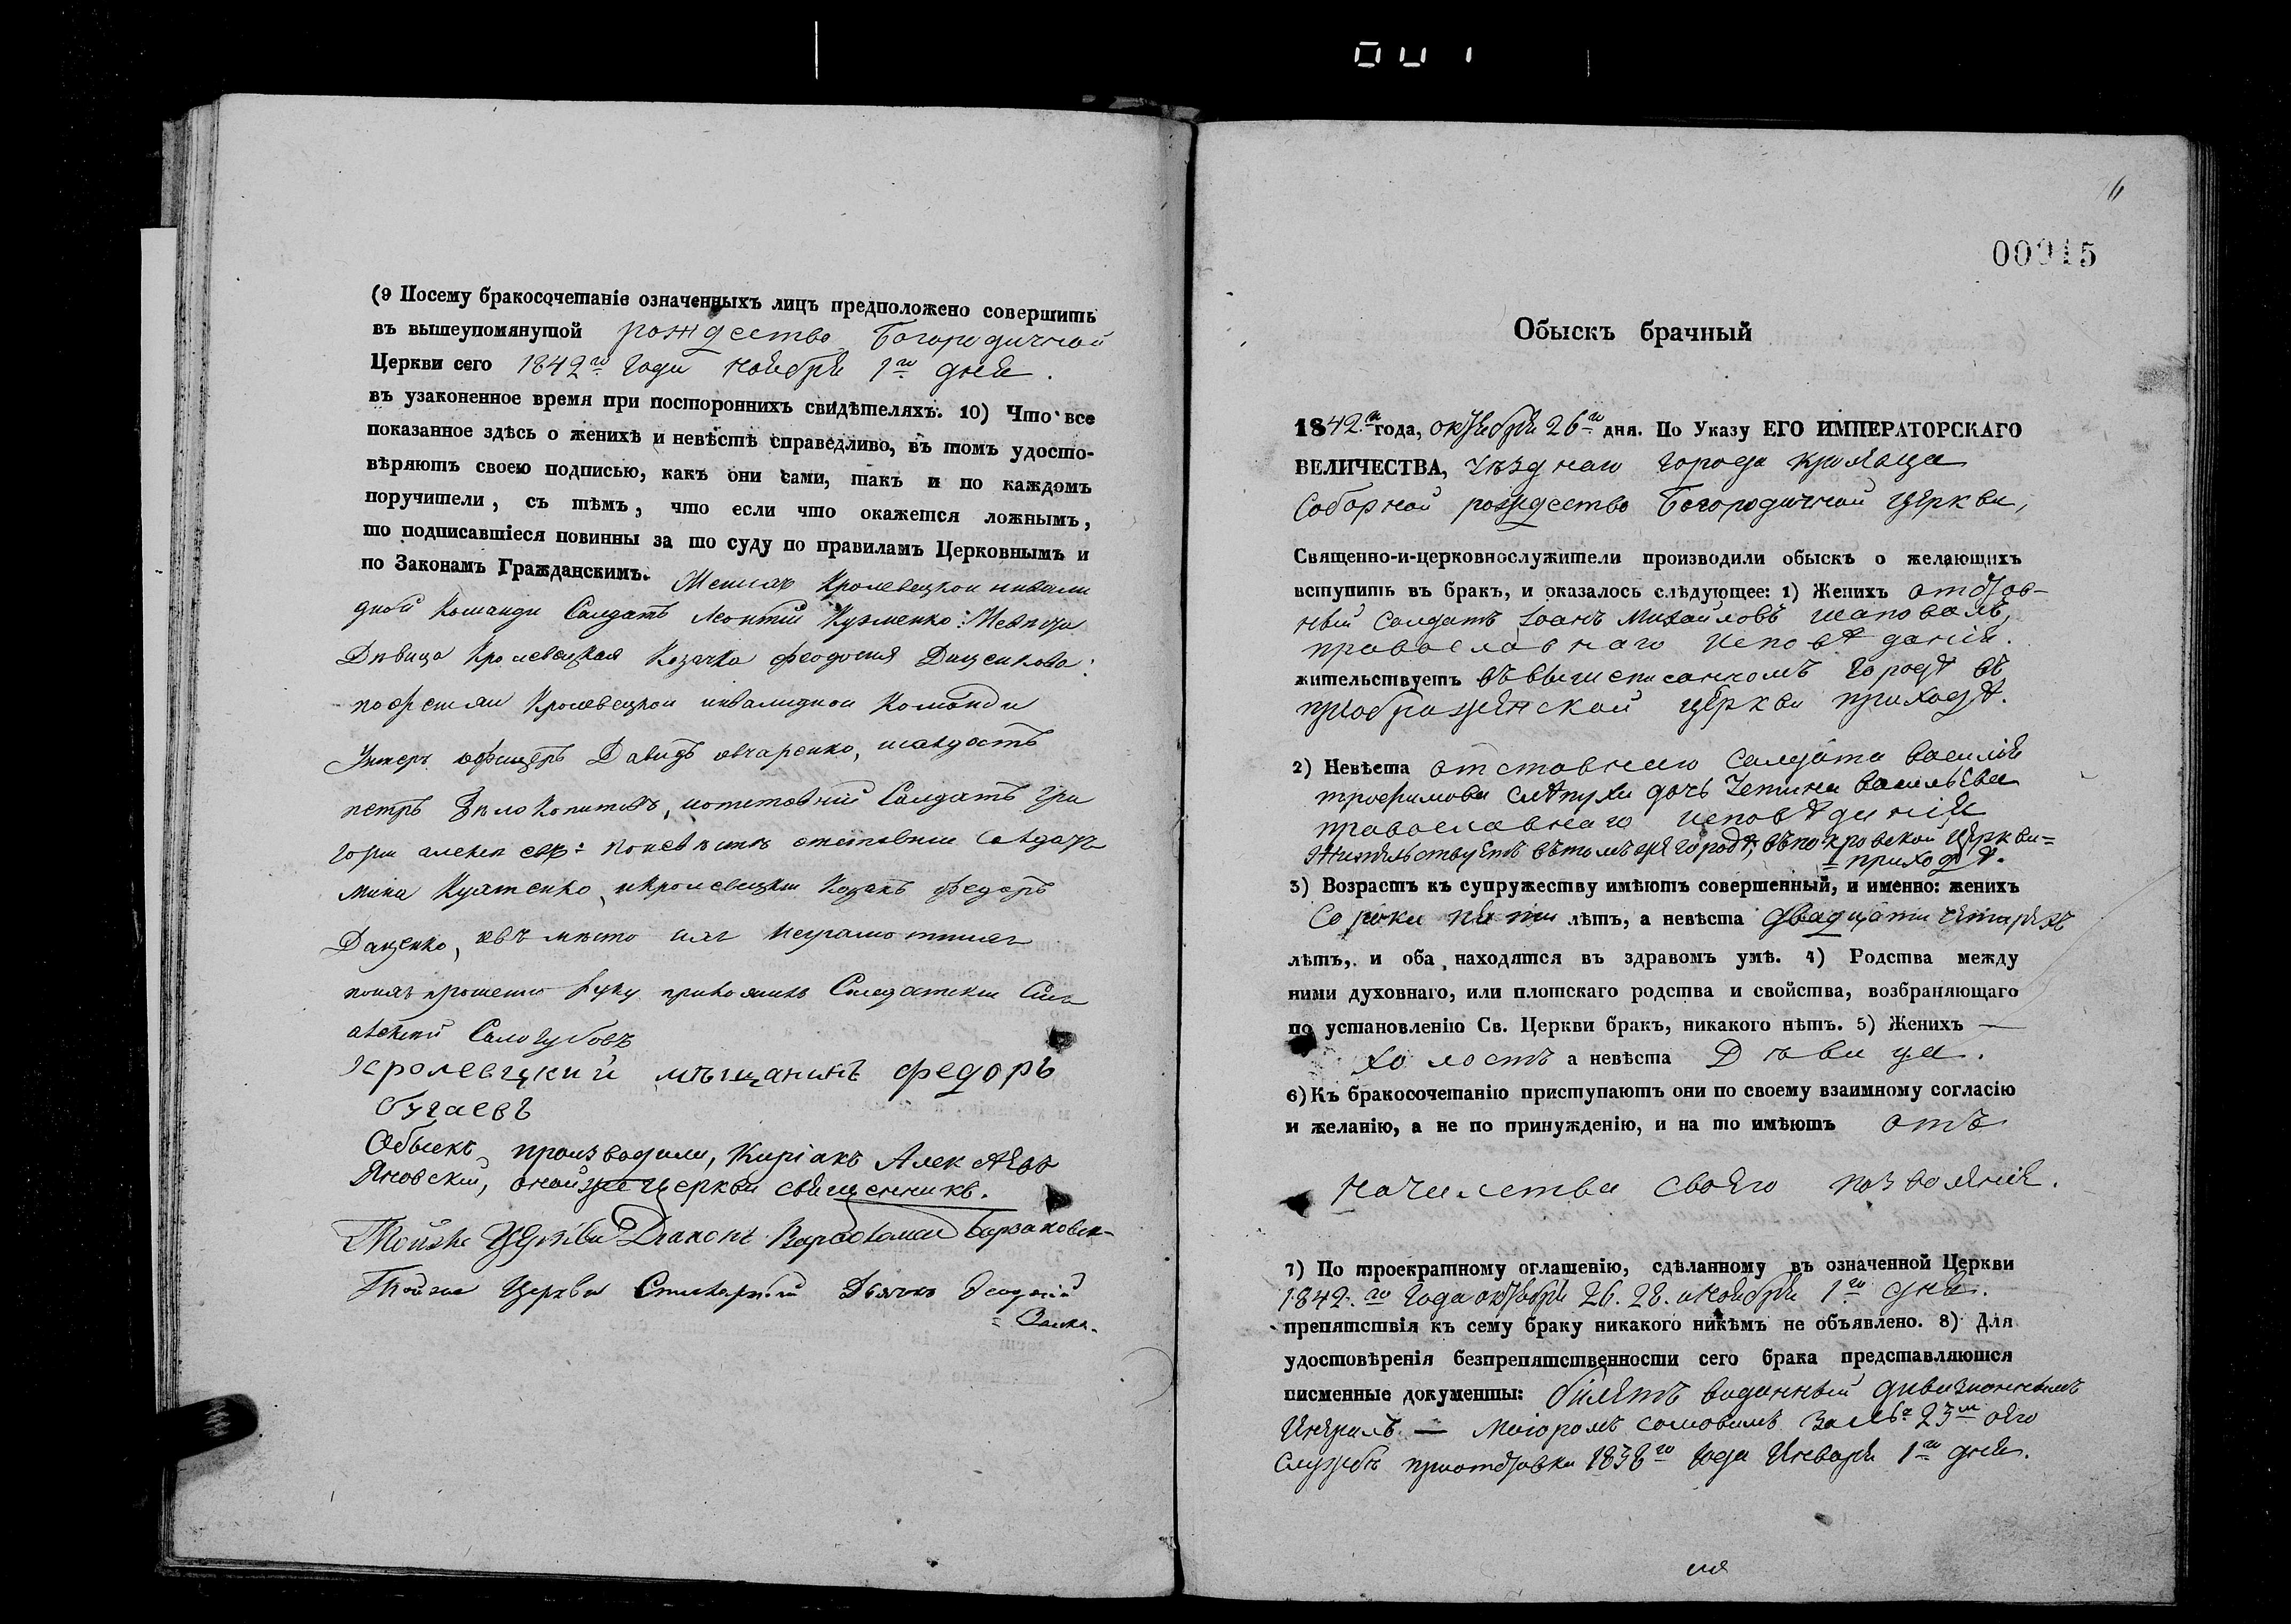 (9 Посему бракосочетаніе означенныхъ лицъ предположено совершить
въ вышеупомянутой рождество Богородичной
Церкви сего 1842го года ноября 1го дня.
въ узаконенное время при постороннихъ свидѣтеляхъ. 10) Что все
показанное здѣсь о женихѣ и невѣстѣ справедливо, въ томъ удосто-
вѣряютъ своею подписью, какъ они сами, такъ и по каждомъ
поручители, съ тѣмъ, что если что окажется ложнымъ,
то подписавшіеся повинны за то суду по правиламъ Церковнымъ и
по Законамъ Гражданскимъ. Женихъ Кролевецкой инвали
дной Команди Салдатъ Леонтій Кузменко: Невѣста
Дѣвица Кролевецкая Козачка Феодосия Даценкова:
Кролевецкой инвалидной Команди
Унтеръ офицеръ Давидъ овчаренко,
петръ Бѣлокопитовъ, Салдатъ Гри
горій
Мина и Кролевецкій Козакъ Федоръ
Даценко, вмѣсто ихъ неграмотнихъ
прошенію руку приложилъ
Салогубовъ
Кролевецкий мѣщанинъ федоръ
бугаевъ
Обыскъ производили, Киріакъ Алексѣевъ
Яновскій, оной же церкви священникъ.
Тойже Церкви Діаконъ Варѳоломей
Тойже Церкви Дьячокъ Ѳеодосій
00915
Обыскъ брачный
1842го года, октября 26го дня. По Указу ЕГО ИМПЕРАТОРСКАГО
ВЕЛИЧЕСТВА, уѣзднаго города
Соборной рождество Богородичной церкви,
Священно-и-церковнослужители производили обыскъ о желающихъ
вступить въ бракъ, и оказалось слѣдующее: 1) Женихъ отстав-
ный Салдатъ Іоанъ Михайловъ шаповалъ,
православнаго исповѣданія.
жительствуетъ въ вышеписанномъ городѣ въ
преображенской церкви приходѣ.
2) Невѣста отставнаго салдата василія
трофимова слѣпухи дочь васильева
православнаго исповѣданія
жительствуетъ въ томъ же городѣ, въ покровской церкви=
=приходѣ.
3) Возрастъ къ супружеству имѣютъ совершенный, и именно: женихъ
Сорока пяти лѣтъ, а невѣста двадцати четырехъ
лѣтъ, и оба находятся въ здравомъ умѣ. 4) Родства между
ними духовнаго, или плотскаго родства и свойства, возбраняющаго
по установленію Св. Церкви бракъ, никакого нѣтъ. 5) Женихъ —
холостъ а невѣста Дѣвица.
6) Къ бракосочетанію приступаютъ они по своему взаимному согласію
и желанію, а не по принужденію, и на то имѣютъ отъ
началства своего позволеніе.
7) По троекратному оглашенію, сдѣланному въ означенной Церкви
1842.го года октября 26. 28. и ноября 1го дня.
препятствія къ сему браку никакого никѣмъ не объявлено. 8) Для
удостовѣренія безпрепятственности сего брака представляются
писменные документы: билетъ виданный дивизионнымъ
— Маіоромъ сомовимъ за № 23м о его
службѣ приотставки 1838го года Января 1го дня.